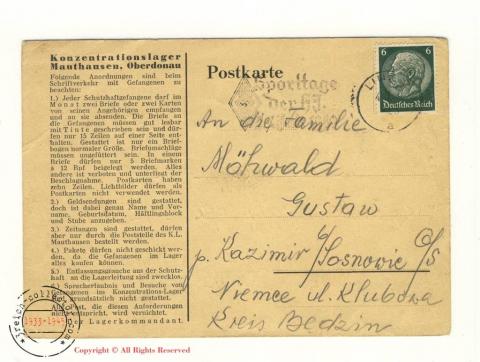 Konzentrationslager
Mauthausen, Oberdonau
Folgende Anordnungen sind beim
Schriftverkehr mit Gefangenen zu
beachten:
1.) Jeder Schutzhaftgefangene darf im
Monat zwei Briefe oder zwei Karten
von seinen Angehörigen empfangen
und an sie absenden. Die Briefe an
die Gefangenen müssen gut lesbar
mit Tinte geschrieben sein und dür-
fen nur 15 Zeilen auf einer Seite ent-
halten. Gestattet ist nur ein Brief-
bogen normaler Größe. Briefumschläge
müssen ungefüttert sein. In einem
Briefe dürfen nur 5 Briefmarken
à 12 Pf beigelegt werden. Alles
andere ist verboten und unterliegt der
Beschlagnahme. Postkarten haben
zehn Zeilen. Lichtbilder dürfen als
Postkarten nicht verwendet werden.
2.) Geldsendungen sind gestattet,
doch ist dabei genau Name und Vor-
name, Geburtsdatum, Häftlingsblock
und Stube anzugeben.
3.) Zeitungen sind gestattet, dürfen
aber nur durch die Poststelle des K.L.
Mauthausen bestellt werden.
4.) Pakete dürfen nicht geschickt wer-
den, da die Gefangenen im Lager
alles kaufen können.
5.) Entlassungsgesuche aus der Schutz-
haft an die Lagerleitung sind zwecklos.
6.) Sprecherlaubnis und Besuche von
Gefangenen im Konzentrations-Lager
sind grundsätzlich nicht gestattet.
Alle Post, die diesen Anforderungen
nicht entspricht, wird vernichtet.
Der Lagerkommandant.
Postkarte
Sporttage
der HJ.
6 6
Deutsches Reich
a
An die Familie
Möhwald
Gustaw
p. Kazimir/Sosnowic O/S
Niemce ul. Klubowa
Kreis Bedzin
1933-1945
Copyright © All Rights Reserved